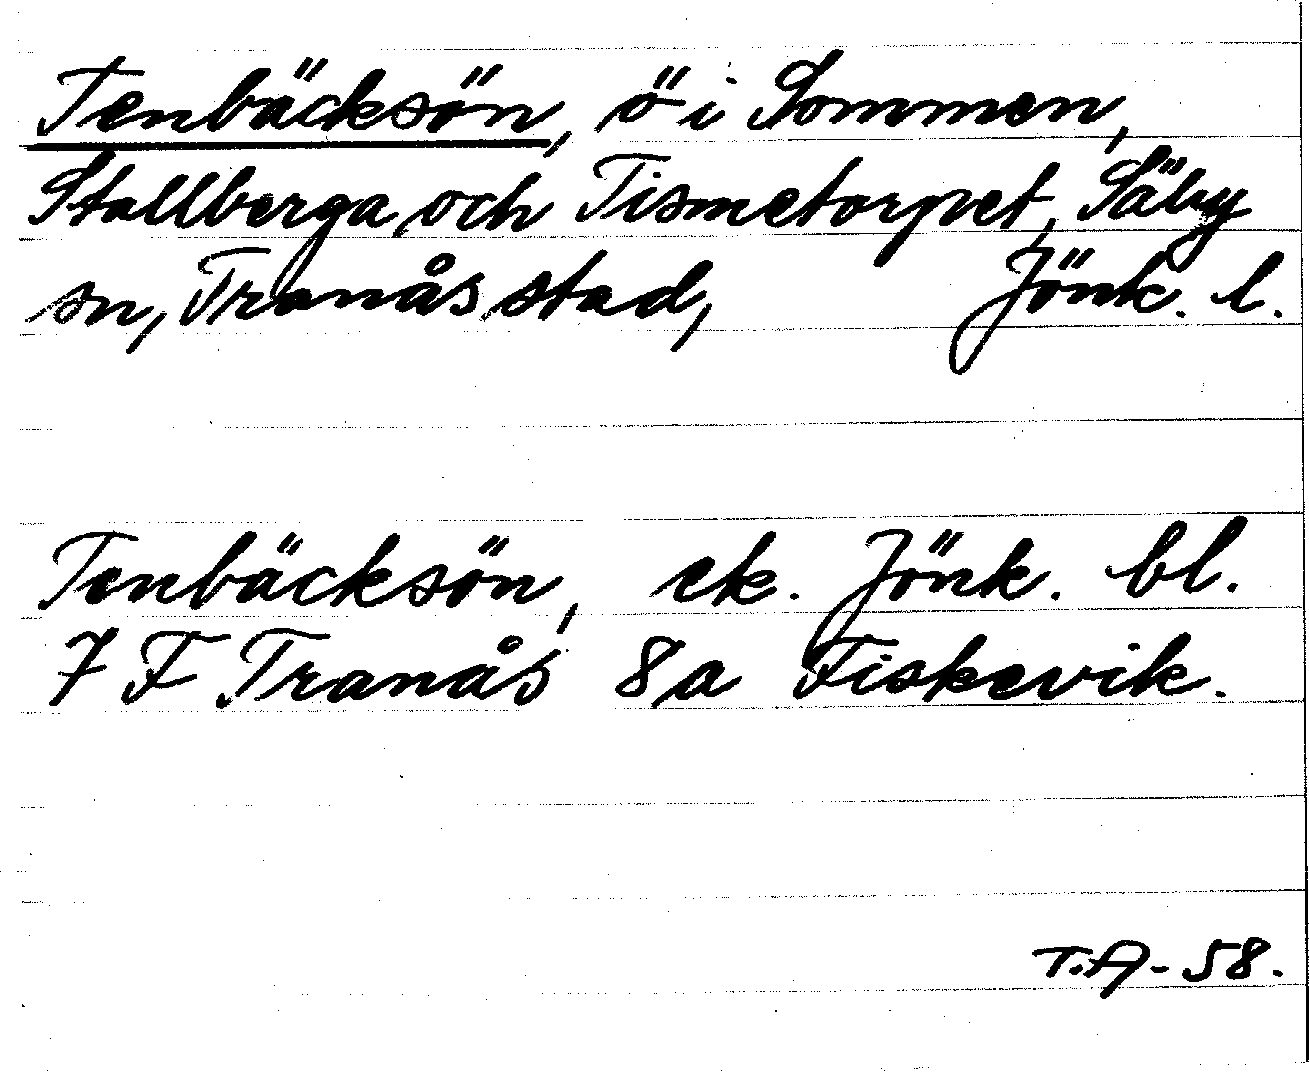 Tenbäcksön, ö i Sommen,
Stallberga och Tismetorpet, Säby
sn, Tranås stad, Jönk. l.
Tenbäcksön, ek. Jönk. bl.
7 F Tranås 8a Fiskevik.
T.A-58.